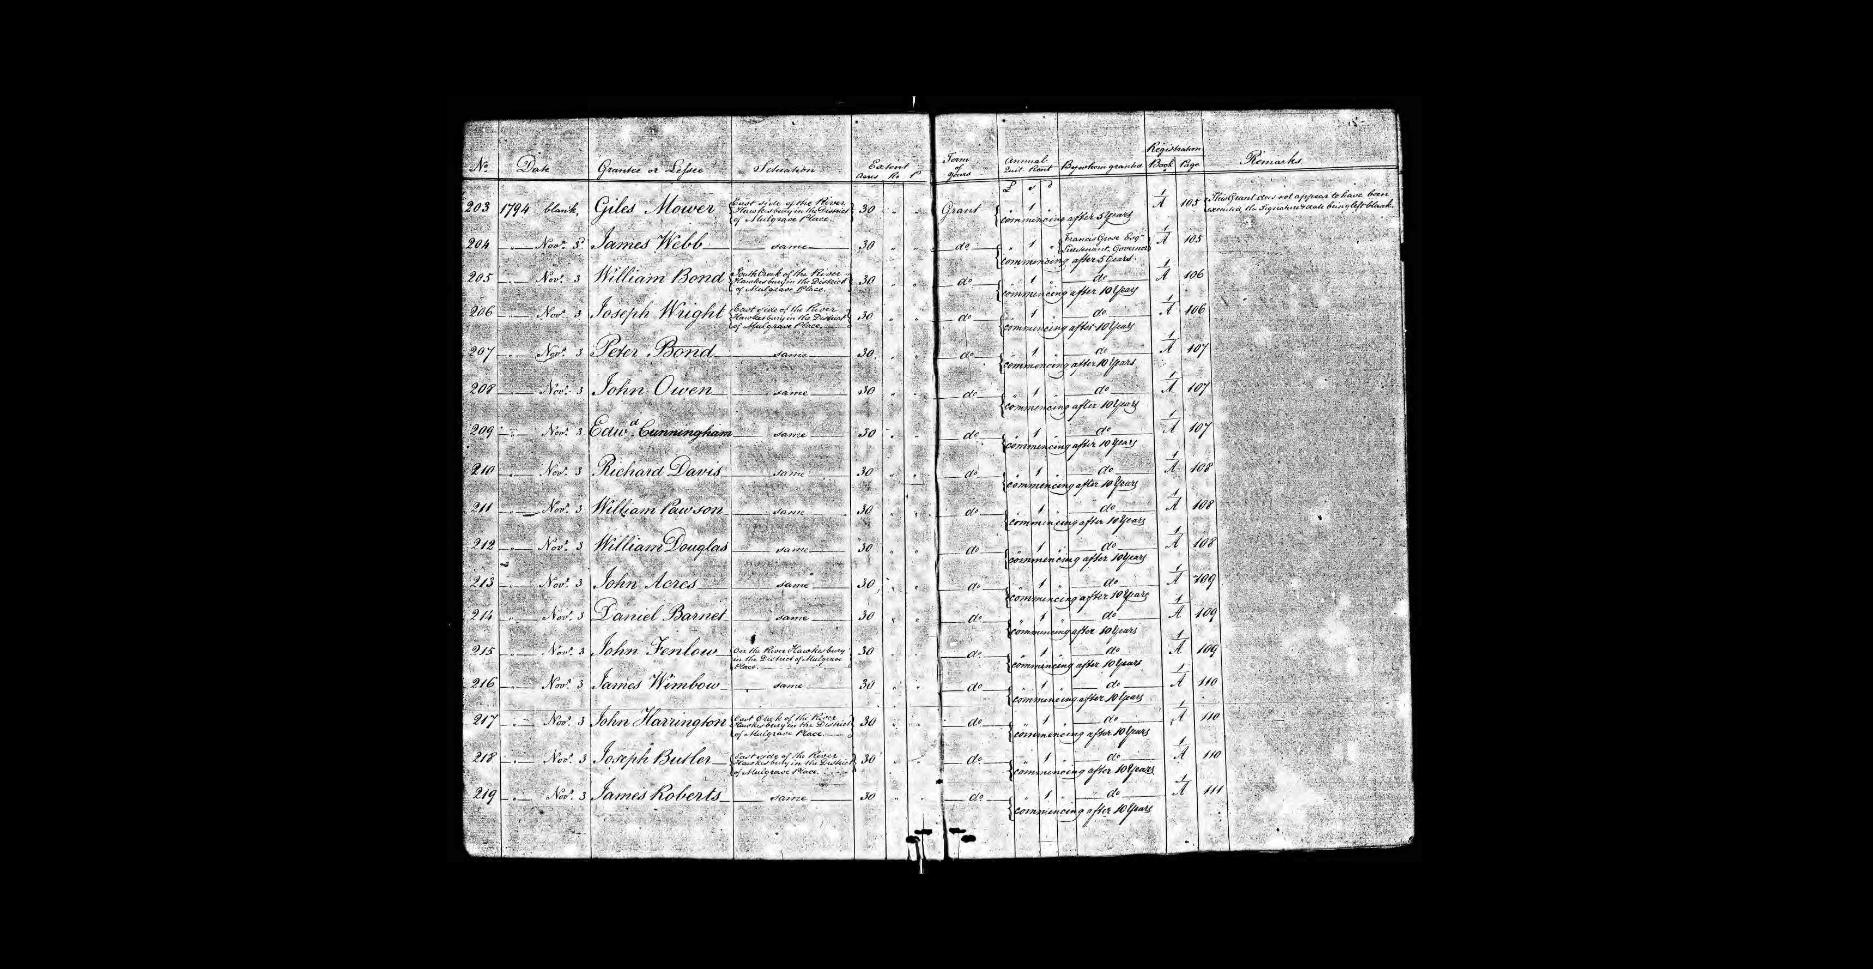 No. Date Grantee or Lessee Situation Extent Acres Ro P. Term of years Annual Quit Rent By whom granted Registration Book Page Remarks
£ s d
203 1794 blank, Giles Mower East side of the River Hawkesbury in the District of Mulgrave Place 30 " " Grant " 1 " commencing after 5 years 1/A 105 This Grant does not appear to have been executed, the Signature & date being left blank.
204 " Novr. 3d James Webb same 30 " " do " 1 " Francis Grose Esqr. Lieutenant Governor commencing after 5 Years. 1/A 105
205 " Novr. 3 William Bond South Creek of the River Hawkesbury in the District of Mulgrave Place. 30 " " do " 1 " do commencing after 10 Years 1/A 106
206 " Novr. 3 Joseph Wright East side of the River Hawkesbury in the District of Mulgrave Place 30 " " do " 1 " do commencing after 10 Years 1/A 106
207 " Novr. 3 Peter Bond same 30 " " do " 1 " do commencing after 10 Years 1/A 107
208 " Novr. 3 John Owen same 30 " " do " 1 " do commencing after 10 Years 1/A 107
209 " Novr. 3 Edwd. Cunningham same 30 " " do " 1 " do commencing after 10 Years 1/A 107
210 " Novr. 3 Richard Davis same 30 " " do " 1 " do commencing after 10 Years 1/A 108
211 " Novr. 3 William Pawson same 30 " " do " 1 " do commencing after 10 Years 1/A 108
212 " Novr. 3 William Douglas same 30 " " do " 1 " do commencing after 10 Years 1/A 108
213 " Novr. 3 John Acres same 30 " " do " 1 " do commencing after 10 Years 1/A 109
214 " Novr. 3 Daniel Barnet same 30 " " do " 1 " do commencing after 10 Years 1/A 109
215 " Novr. 3 John Fenlow On the River Hawkesbury in the District of Mulgrave Place. 30 " " do " 1 " do commencing after 10 Years 1/A 109
216 " Novr. 3 James Wimbow same 30 " " do " 1 " do commencing after 10 Years 1/A 110
217 " Novr. 3 John Harrington East Creek of the River Hawkesbury in the District of Mulgrave Place. 30 " " do " 1 " do commencing after 10 Years 1/A 110
218 " Novr. 3 Joseph Butler East side of the River Hawkesbury in the District of Mulgrave Place. 30 " " do " 1 " do commencing after 10 Years 1/A 110
219 " Novr. 3 James Roberts same 30 " " do " 1 " do commencing after 10 Years 1/A 111